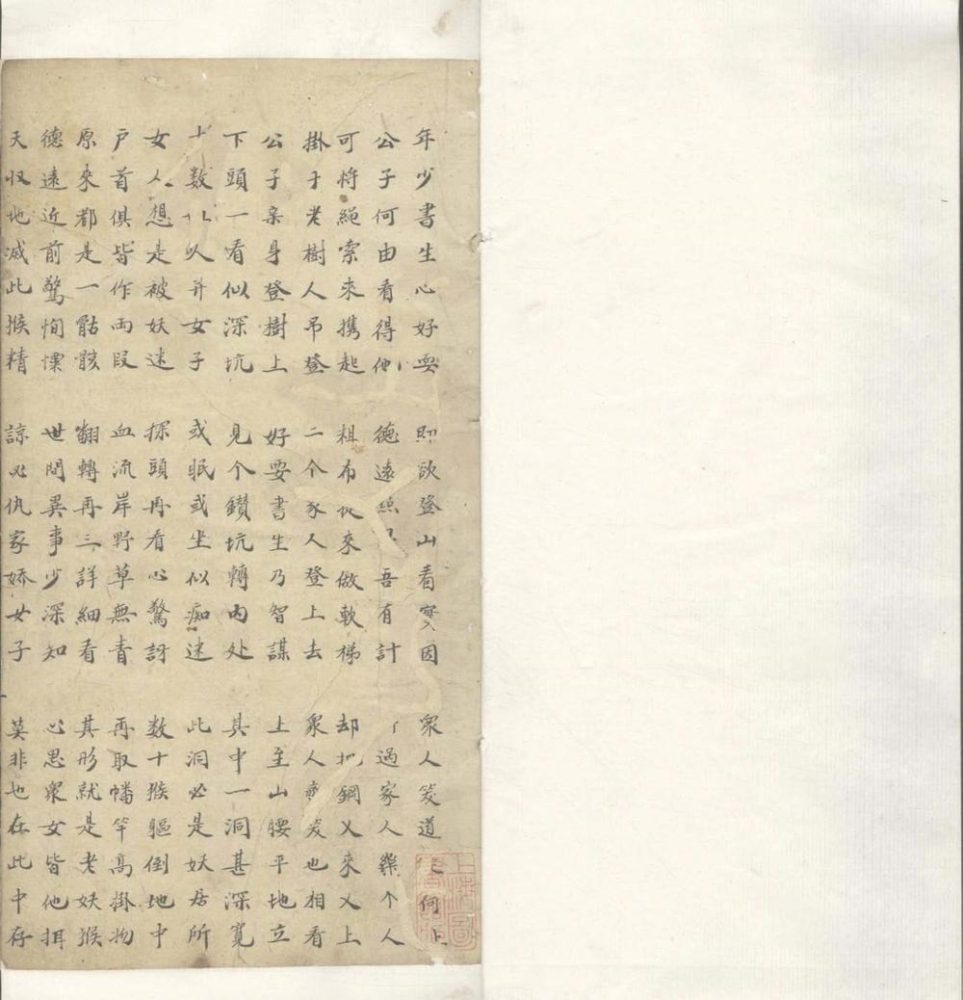 年少書生心好耍 則欲登山看實因 衆人笑道 何上
公子何由看得他 德遠 吾有計 過家人 个人
可将繩索來携起 粗布 來做軟梯 却把鋼叉來叉上
掛于老樹人吊登 二个家人登上去 衆人 笑也相看
公子亲身登樹上 好耍書生乃智謀 上至山腰平地立
下頭一看似深坑 見个鑚坑轉内处 其中一洞甚深寬
十数 人并女子 或眠或坐似痴迷 此洞必是妖居所
女人想是被妖迷 探頭再看心驚訝 数十猴軀倒地中
户首俱皆作兩段 血流岸野草無青 再取幡竿高掛物
原來都是一骷骸 翻轉再三詳細看 其形就是老妖猴
德遠近前驚恂慄 世間異事少深知 心思衆女皆他拐
天收地滅此猴精 諒必仇家嬌女子 莫非也在此中存